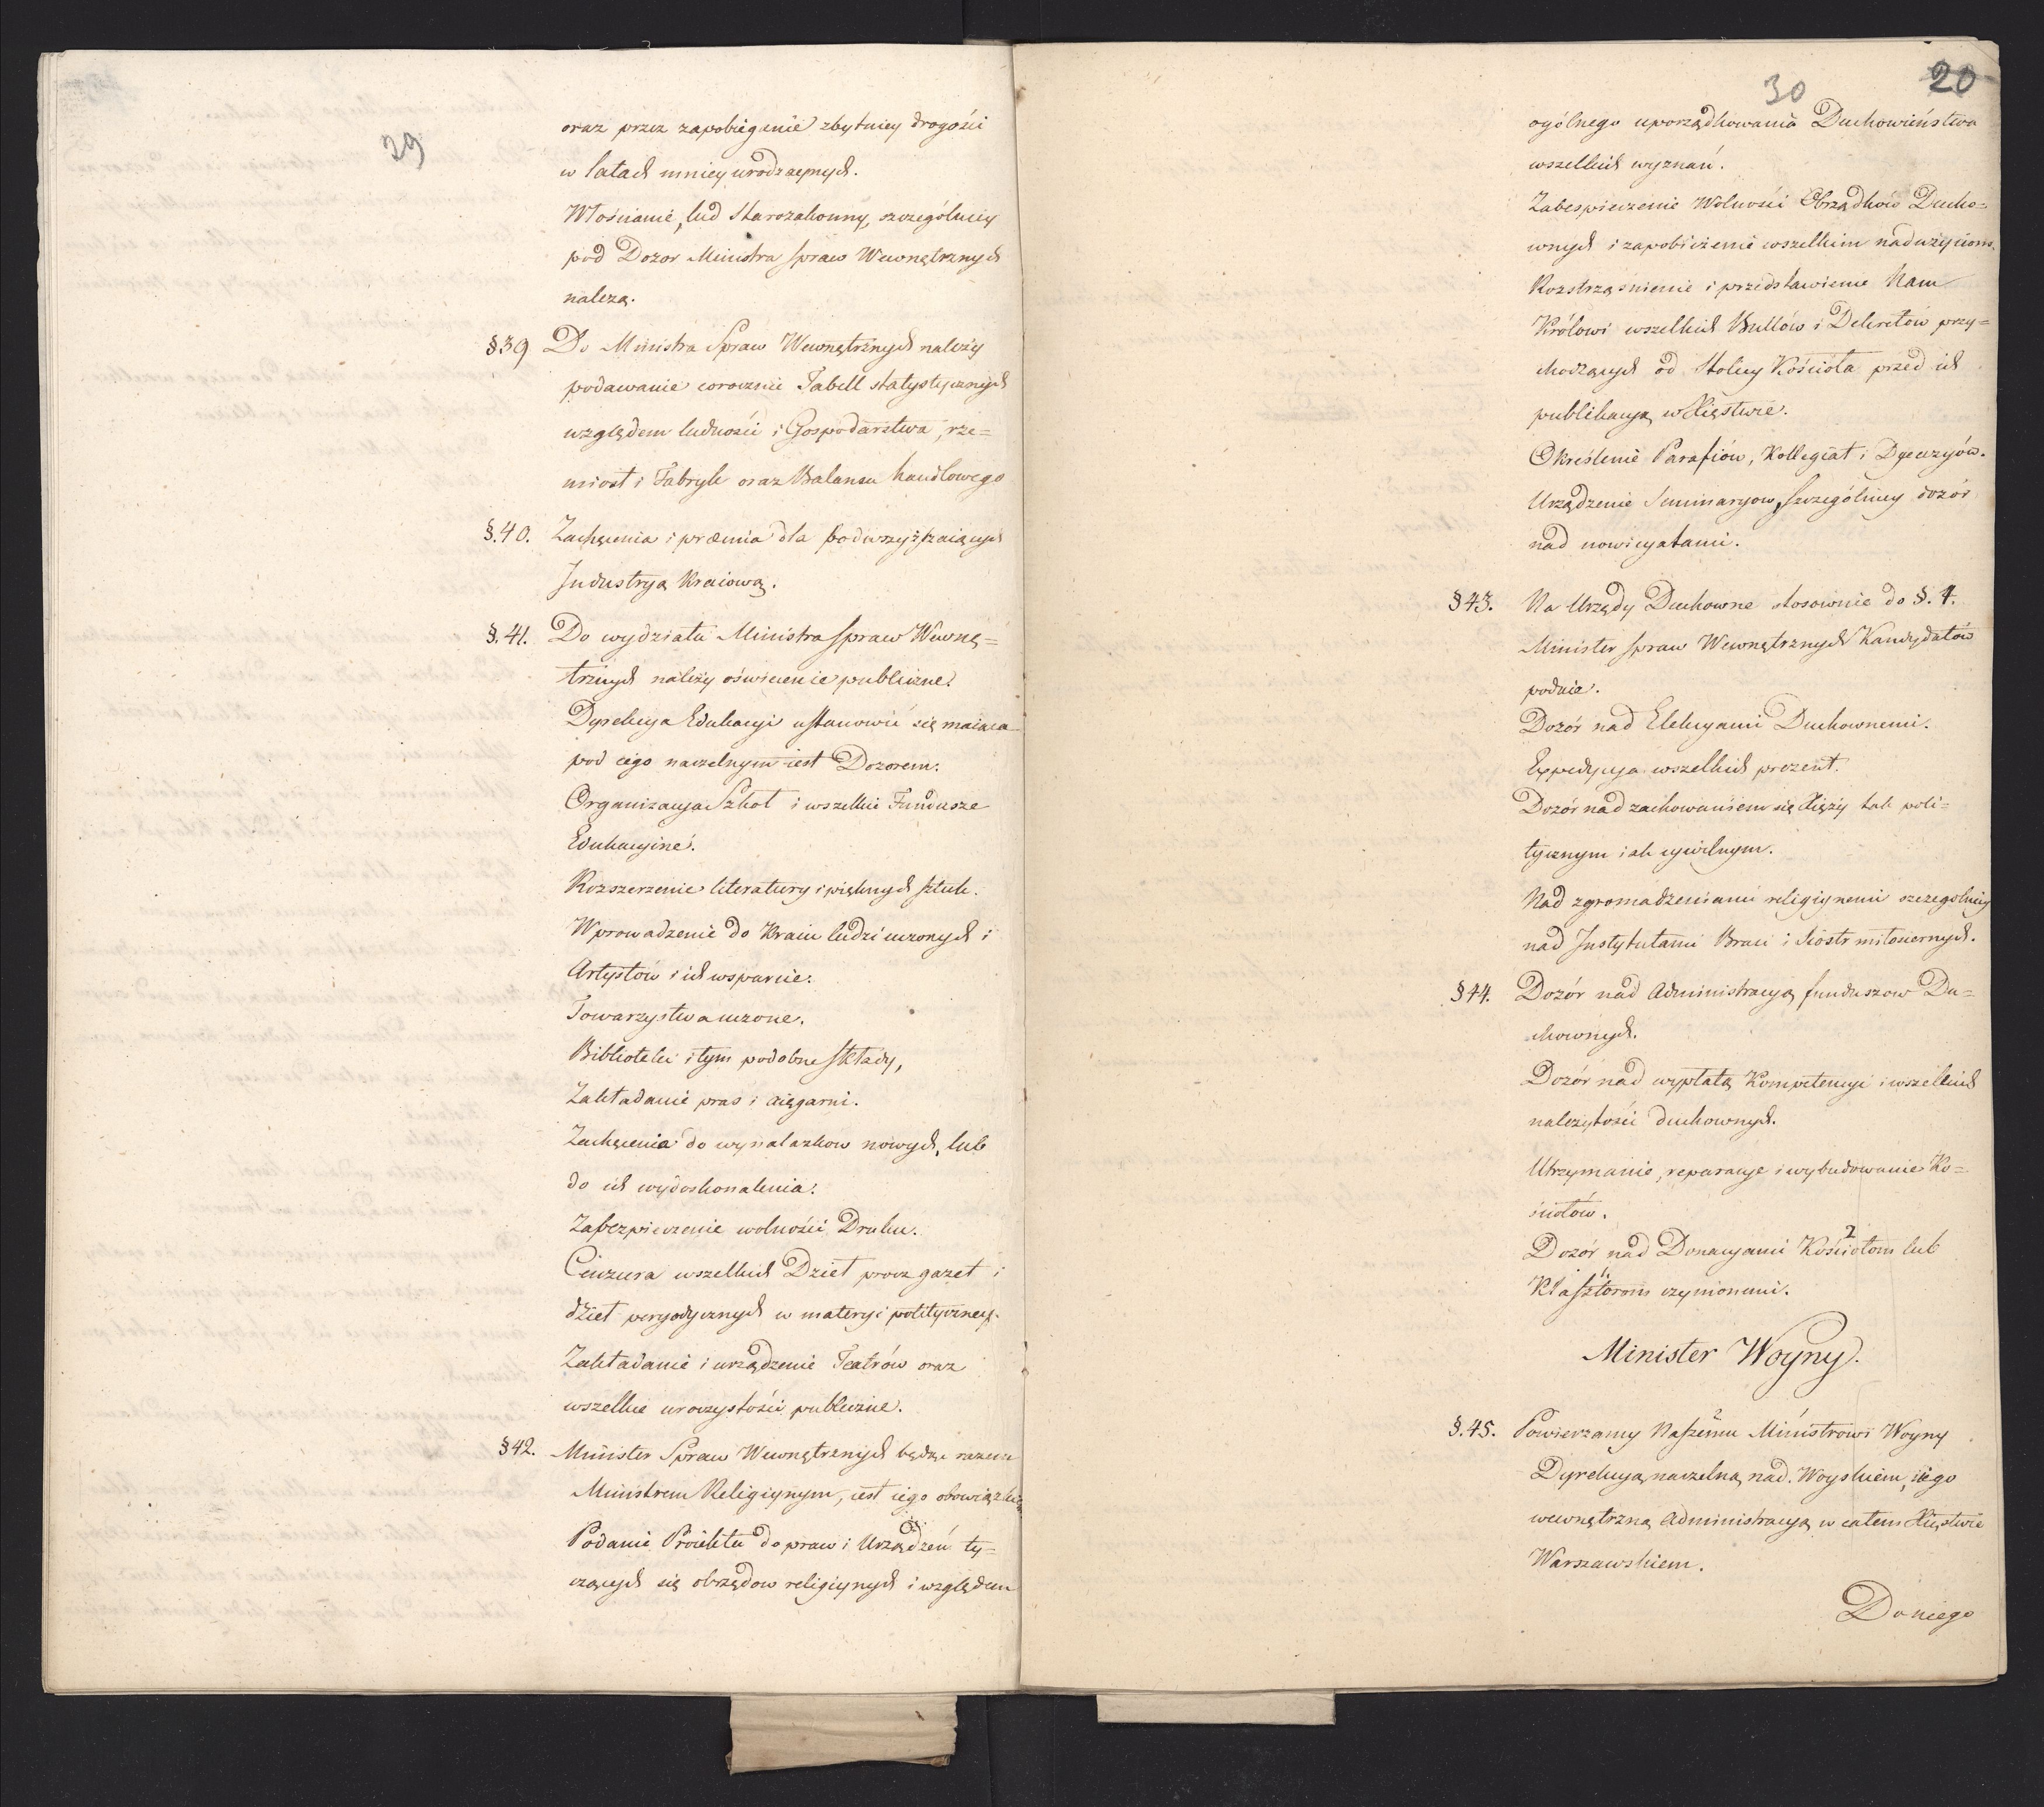 29
oraz przez zapobieganie zbytniey drogości
w latach mniey urodzaynych.
Włościanie, lud Starozakonny, szczególniey
pod Dozor Ministra spraw Wewnętrznych
należą.
§39 Do Ministra Spraw Wewnętrznych należy
podawanie corocznie Tabell statystycznych
względem ludności i Gospodarstwa, rze=
miosł i Fabryk oraz Balansu handlowego
§.40. Zachęcenia i præmia dla podwyższaiących
Industryą Kraiową.
§.41. Do wydziału Ministra spraw Wewnę=
trznych należy oświecenie publiczne.
Dyrekcya Edukacyi ustanowić się maiąca
pod iego naczelnym iest Dozorem.
Organizacya Szkoł i wszelkie Fundusze
Edukacyine.
Rozszerzenie literatury i pięknych sztuk.
Wprowadzenie do Kraiu ludzi uczonych i
Artystów i ich wsparcie.
Towarzystwa uczone.
Biblioteki i tym podobne składy,
Zakładanie pras i xięgarni.
Zachęcenia do wynalazkow nowych, lub
do ich wydoskonalenia.
Zabezpieczenie wolności Druku.
Cenzura wszelkich Dzieł procz gazet i
dzieł peryodycznych w materyi polityczney.
Zakładanie i urządzenie Teatrów oraz
wszelkie uroczystości publiczne.
§42. Minister Spraw Wewnętrznych będąc razem
Ministrem Religiynym, iest iego obowiązkiem
Podanie Proiektu do praw i Urządzeń ty=
czących się obrzędow religiynych i względem
30
20
ogólnego uporządkowania Duchowieństwa
wszelkich wyznań.
Zabespieczenie Wolności Obrządków Ducho=
wnych i zapobieżenie wszelkim nadużyciom.
Rozstrząśnienie i przedstawienie Nam
Królowi wszelkich Bullów i Dekretów przy=
chodzących od Stolicy Kościoła przed ich
publikacyą w Xięstwie.
Określenie Parafiów, Kollegiat i Dyecezyów.
Urządzenie Seminaryow, szczególniey dozór
nad nowicyatami.
§43. Na Urzędy Duchowne stosownie do §. 4.
Minister spraw Wewnętrznych Kandydatów
podaie.
Dozór nad Elekcyami Duchownemi.
Expedycya wszelkich prezent.
Dozór nad zachowaniem się Xięży tak poli=
tycznym iak cywilnym.
Nad zgromadzeniami religiynemi szczególniey
nad Instytutami Braci i Siostr miłosiernych.
§44. Dozór nad Administracyą funduszow Du=
chownych.
Dozór nad wypłatą Kompetencyi i wszelkich
należytości duchownych.
Utrzymanie, reparacye i wybudowanie Ko=
ściołów.
Dozór nad Donacyami Kościołom lub
Klasztorom czynionemi.
Minister Woyny.
§.45. Powierzamy Naszemu Ministrowi Woyny
Dyrekcyą naczelną nad Woyskiem, i iego
wewnętrzną Administracyą w całem Xięstwie
Warszawskiem.
Do niego